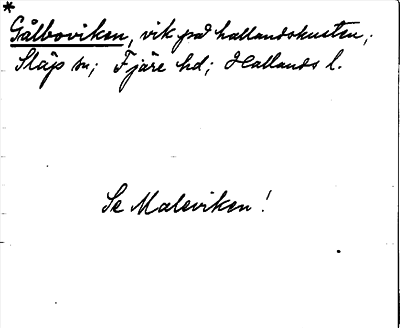 *
Gålboviken, vik på hallandskusten;
Släp sn; Fjäre hd; Hallands l.
Se Maleviken!